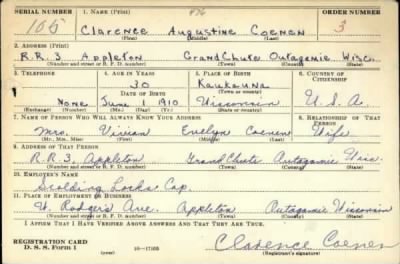 SERIAL NUMBER 1. NAME (Print) ORDER NUMBER
105 Clarence Augustine Coenen 3
(First) (Middle) (Last)
2. ADDRESS (Print)
R.R.3 Appleton Grand Chute Outagamie Wisc.
(Number and street or R. F. D. number) (Town) (County) (State)
3. TELEPHONE 4. AGE IN YEARS 5. PLACE OF BIRTH 6. COUNTRY OF CITIZENSHIP
30 Kaukauna
DATE OF BIRTH (Town or county)
None June 1 1910 Wisconsin U.S.A.
(Exchange) (Number) (Mo.) (Day) (Yr.) (State or country)
7. NAME OF PERSON WHO WILL ALWAYS KNOW YOUR ADDRESS 8. RELATIONSHIP OF THAT PERSON
Mrs. Vivian Evelyn Coenen Wife
(Mr., Mrs., Miss) (First) (Middle) (Last)
9. ADDRESS OF THAT PERSON
R.R.3, Appleton Grand Chute Outagamie Wisc.
(Number and street or R. F. D. number) (Town) (County) (State)
10. EMPLOYER'S NAME
Scolding Locks Cop.
11. PLACE OF EMPLOYMENT OR BUSINESS
W. Rodgers Ave. Appleton Outagamie Wisconsin
(Number and street or R. F. D. number) (Town) (County) (State)
I AFFIRM THAT I HAVE VERIFIED ABOVE ANSWERS AND THAT THEY ARE TRUE.
REGISTRATION CARD
D. S. S. Form 1 16—17105 Clarence Coenen
(Registrant's signature)